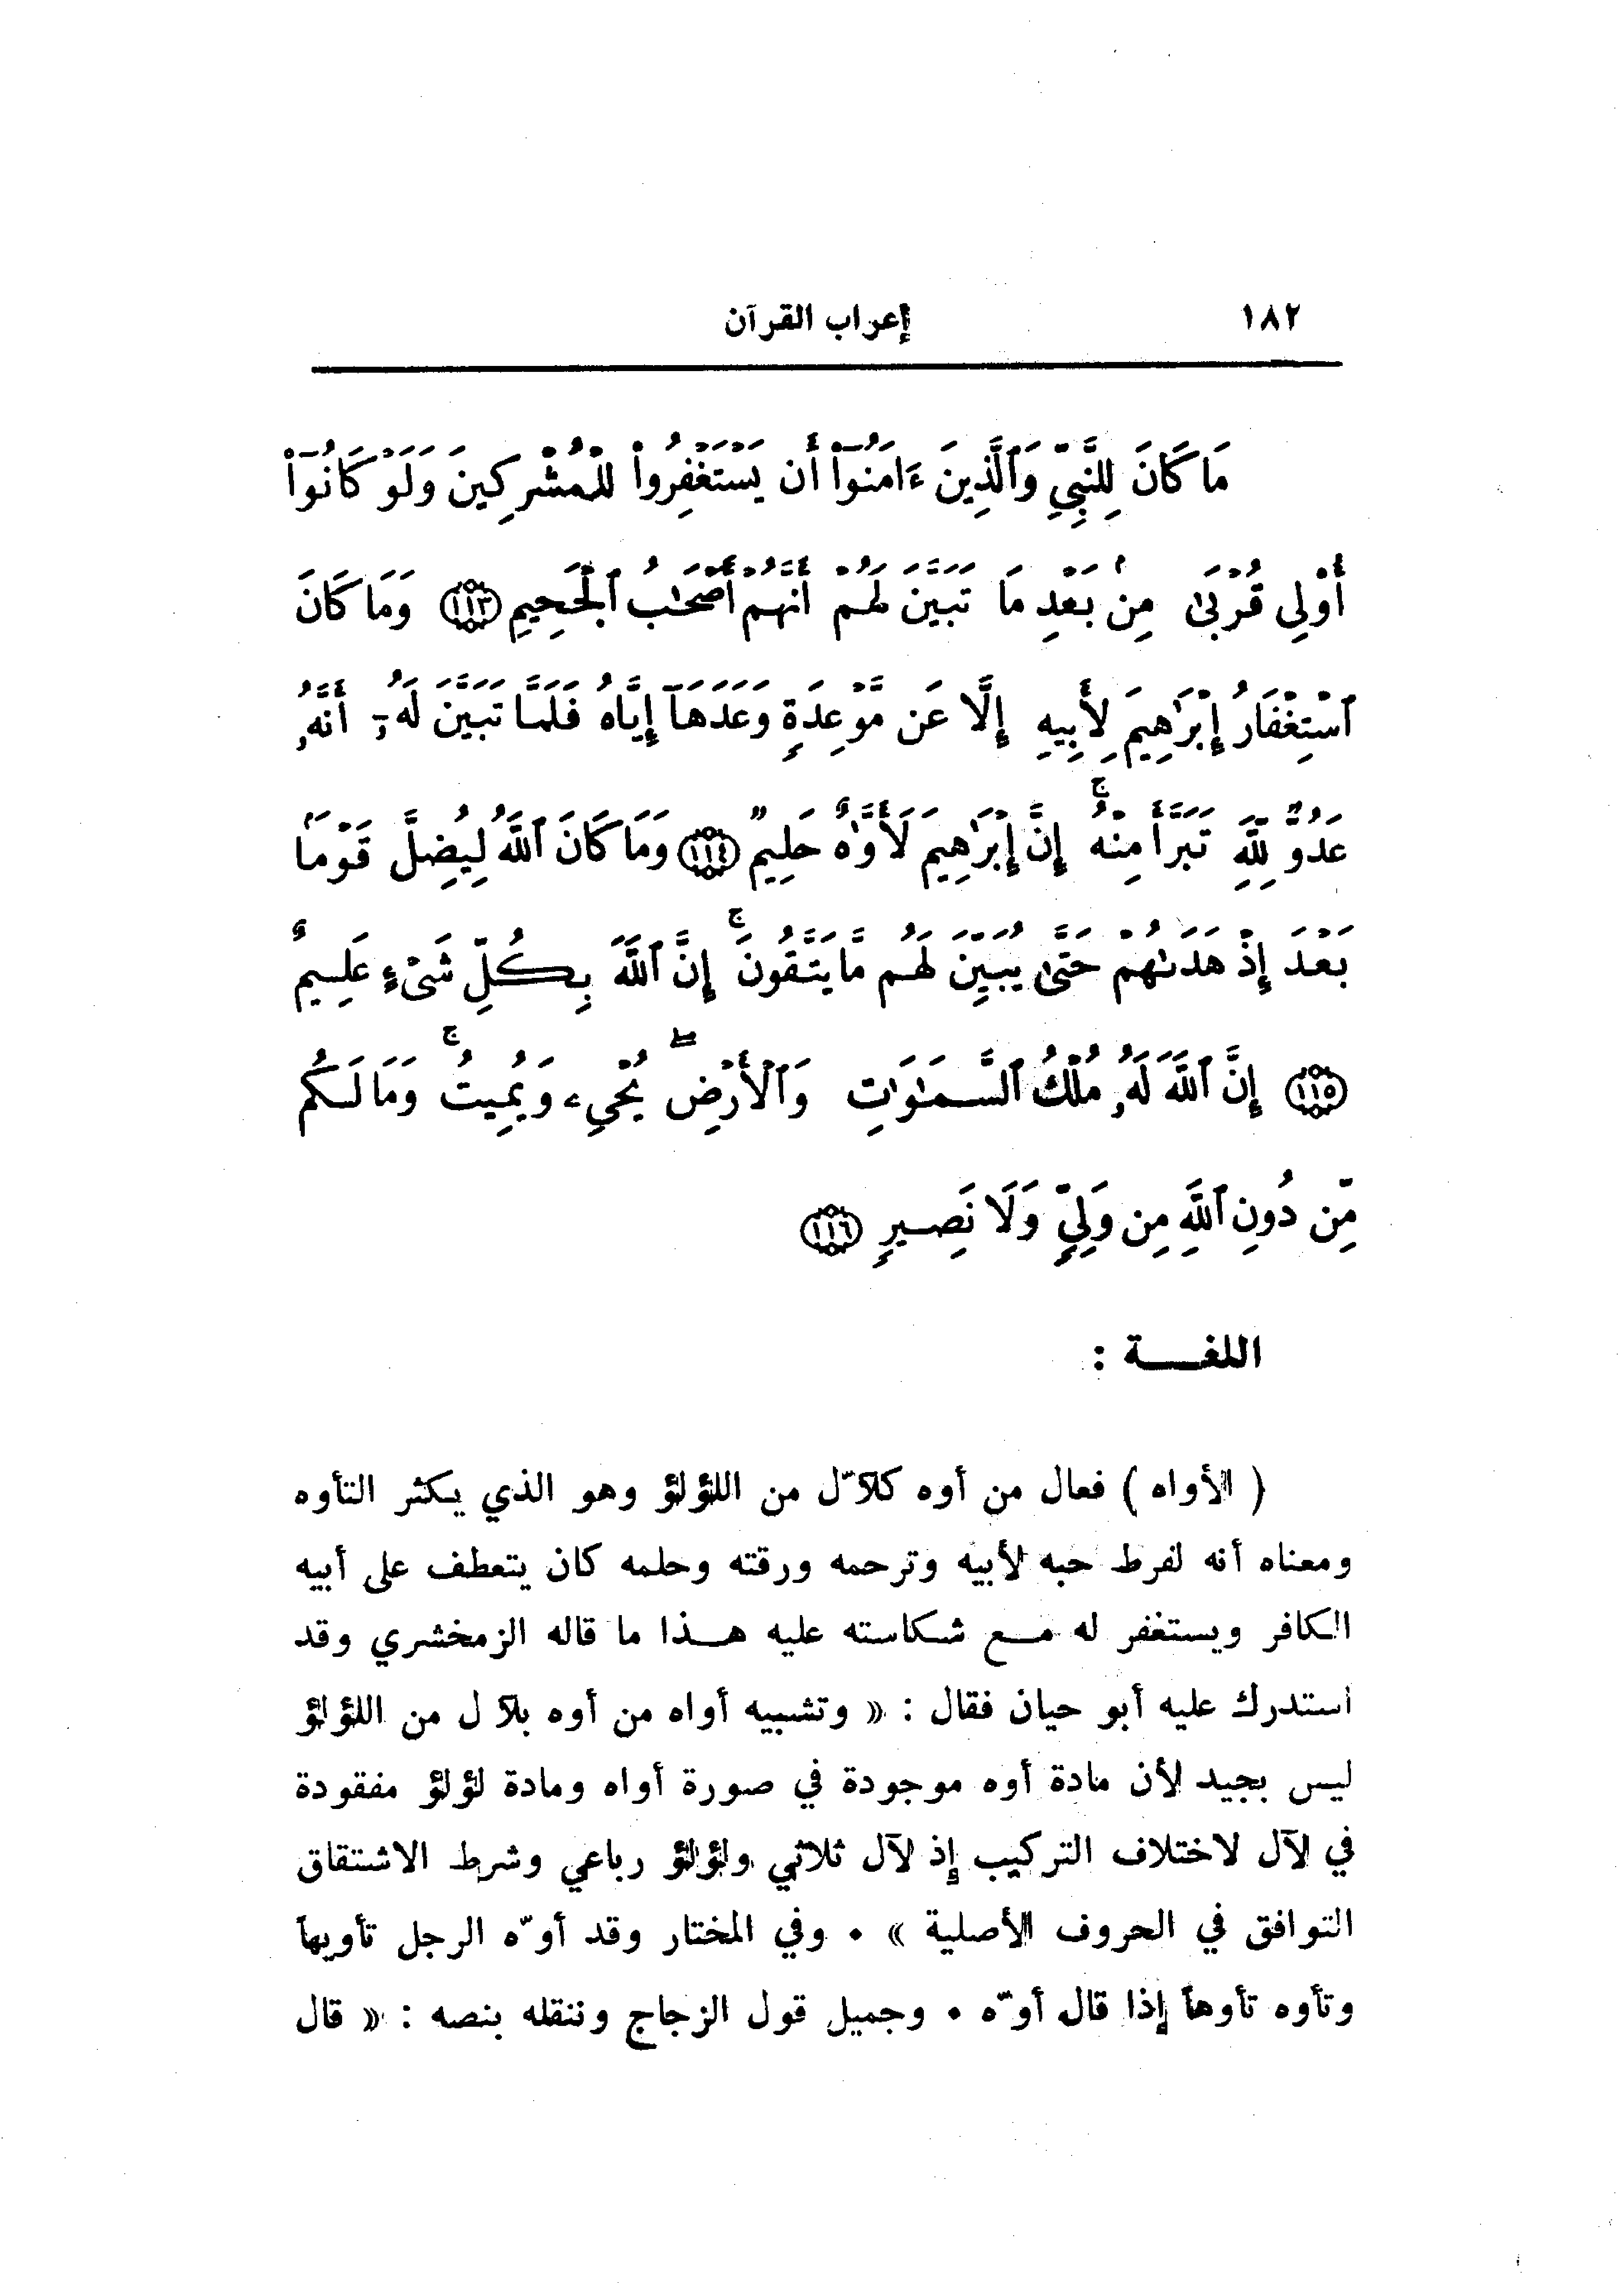 ١٨٢ إعراب القرآن
مَا كَانَ لِلنَّبِيِّ وَٱلَّذِينَ ءَامَنُوٓا۟ أَن يَسْتَغْفِرُوا۟ لِلْمُشْرِكِينَ وَلَوْ كَانُوٓا۟
أُو۟لِى قُرْبَىٰ مِنۢ بَعْدِ مَا تَبَيَّنَ لَهُمْ أَنَّهُمْ أَصْحَٰبُ ٱلْجَحِيمِ ﴿١١٣﴾ وَمَا كَانَ
ٱسْتِغْفَارُ إِبْرَٰهِيمَ لِأَبِيهِ إِلَّا عَن مَّوْعِدَةٍ وَعَدَهَآ إِيَّاهُ فَلَمَّا تَبَيَّنَ لَهُۥٓ أَنَّهُۥ
عَدُوٌّ لِلَّهِ تَبَرَّأَ مِنْهُ ۚ إِنَّ إِبْرَٰهِيمَ لَأَوَّٰهٌ حَلِيمٌ ﴿١١٤﴾ وَمَا كَانَ ٱللَّهُ لِيُضِلَّ قَوْمًۢا
بَعْدَ إِذْ هَدَىٰهُمْ حَتَّىٰ يُبَيِّنَ لَهُم مَّا يَتَّقُونَ ۚ إِنَّ ٱللَّهَ بِكُلِّ شَىْءٍ عَلِيمٌ
﴿١١٥﴾ إِنَّ ٱللَّهَ لَهُۥ مُلْكُ ٱلسَّمَٰوَٰتِ وَٱلْأَرْضِ ۖ يُحْىِۦ وَيُمِيتُ ۚ وَمَا لَكُم
مِّن دُونِ ٱللَّهِ مِن وَلِىٍّ وَلَا نَصِيرٍ ﴿١١٦﴾
اللغـــة :
( الأواه ) فعال من أوه كلآّل من اللؤلؤ وهو الذي يكثر التأوه
ومعناه أنه لفرط حبه لأبيه وترحمه ورقته وحلمه كان يتعطف على أبيه
الكافر ويستغفر له مـع شكاسته عليه هـذا ما قاله الزمخشري وقد
استدرك عليه أبو حيان فقال : « وتشبيه أواه من أوه بلآل من اللؤلؤ
ليس بجيد لأن مادة أوه موجودة في صورة أواه ومادة لؤلؤ مفقودة
في لآل لاختلاف التركيب إذ لآل ثلاثي ولؤلؤ رباعي وشرط الاشتقاق
التوافق في الحروف الأصلية » ٠ وفي المختار وقد أوّه الرجل تأويهاً
وتأوه تأوهاً إذا قال أوّه ٠ وجميل قول الزجاج وننقله بنصه : « قال